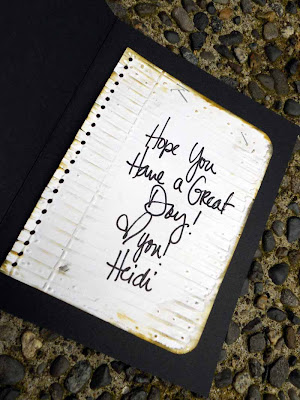 Hope You
Have a Great
Day!
♡ you!
Heidi